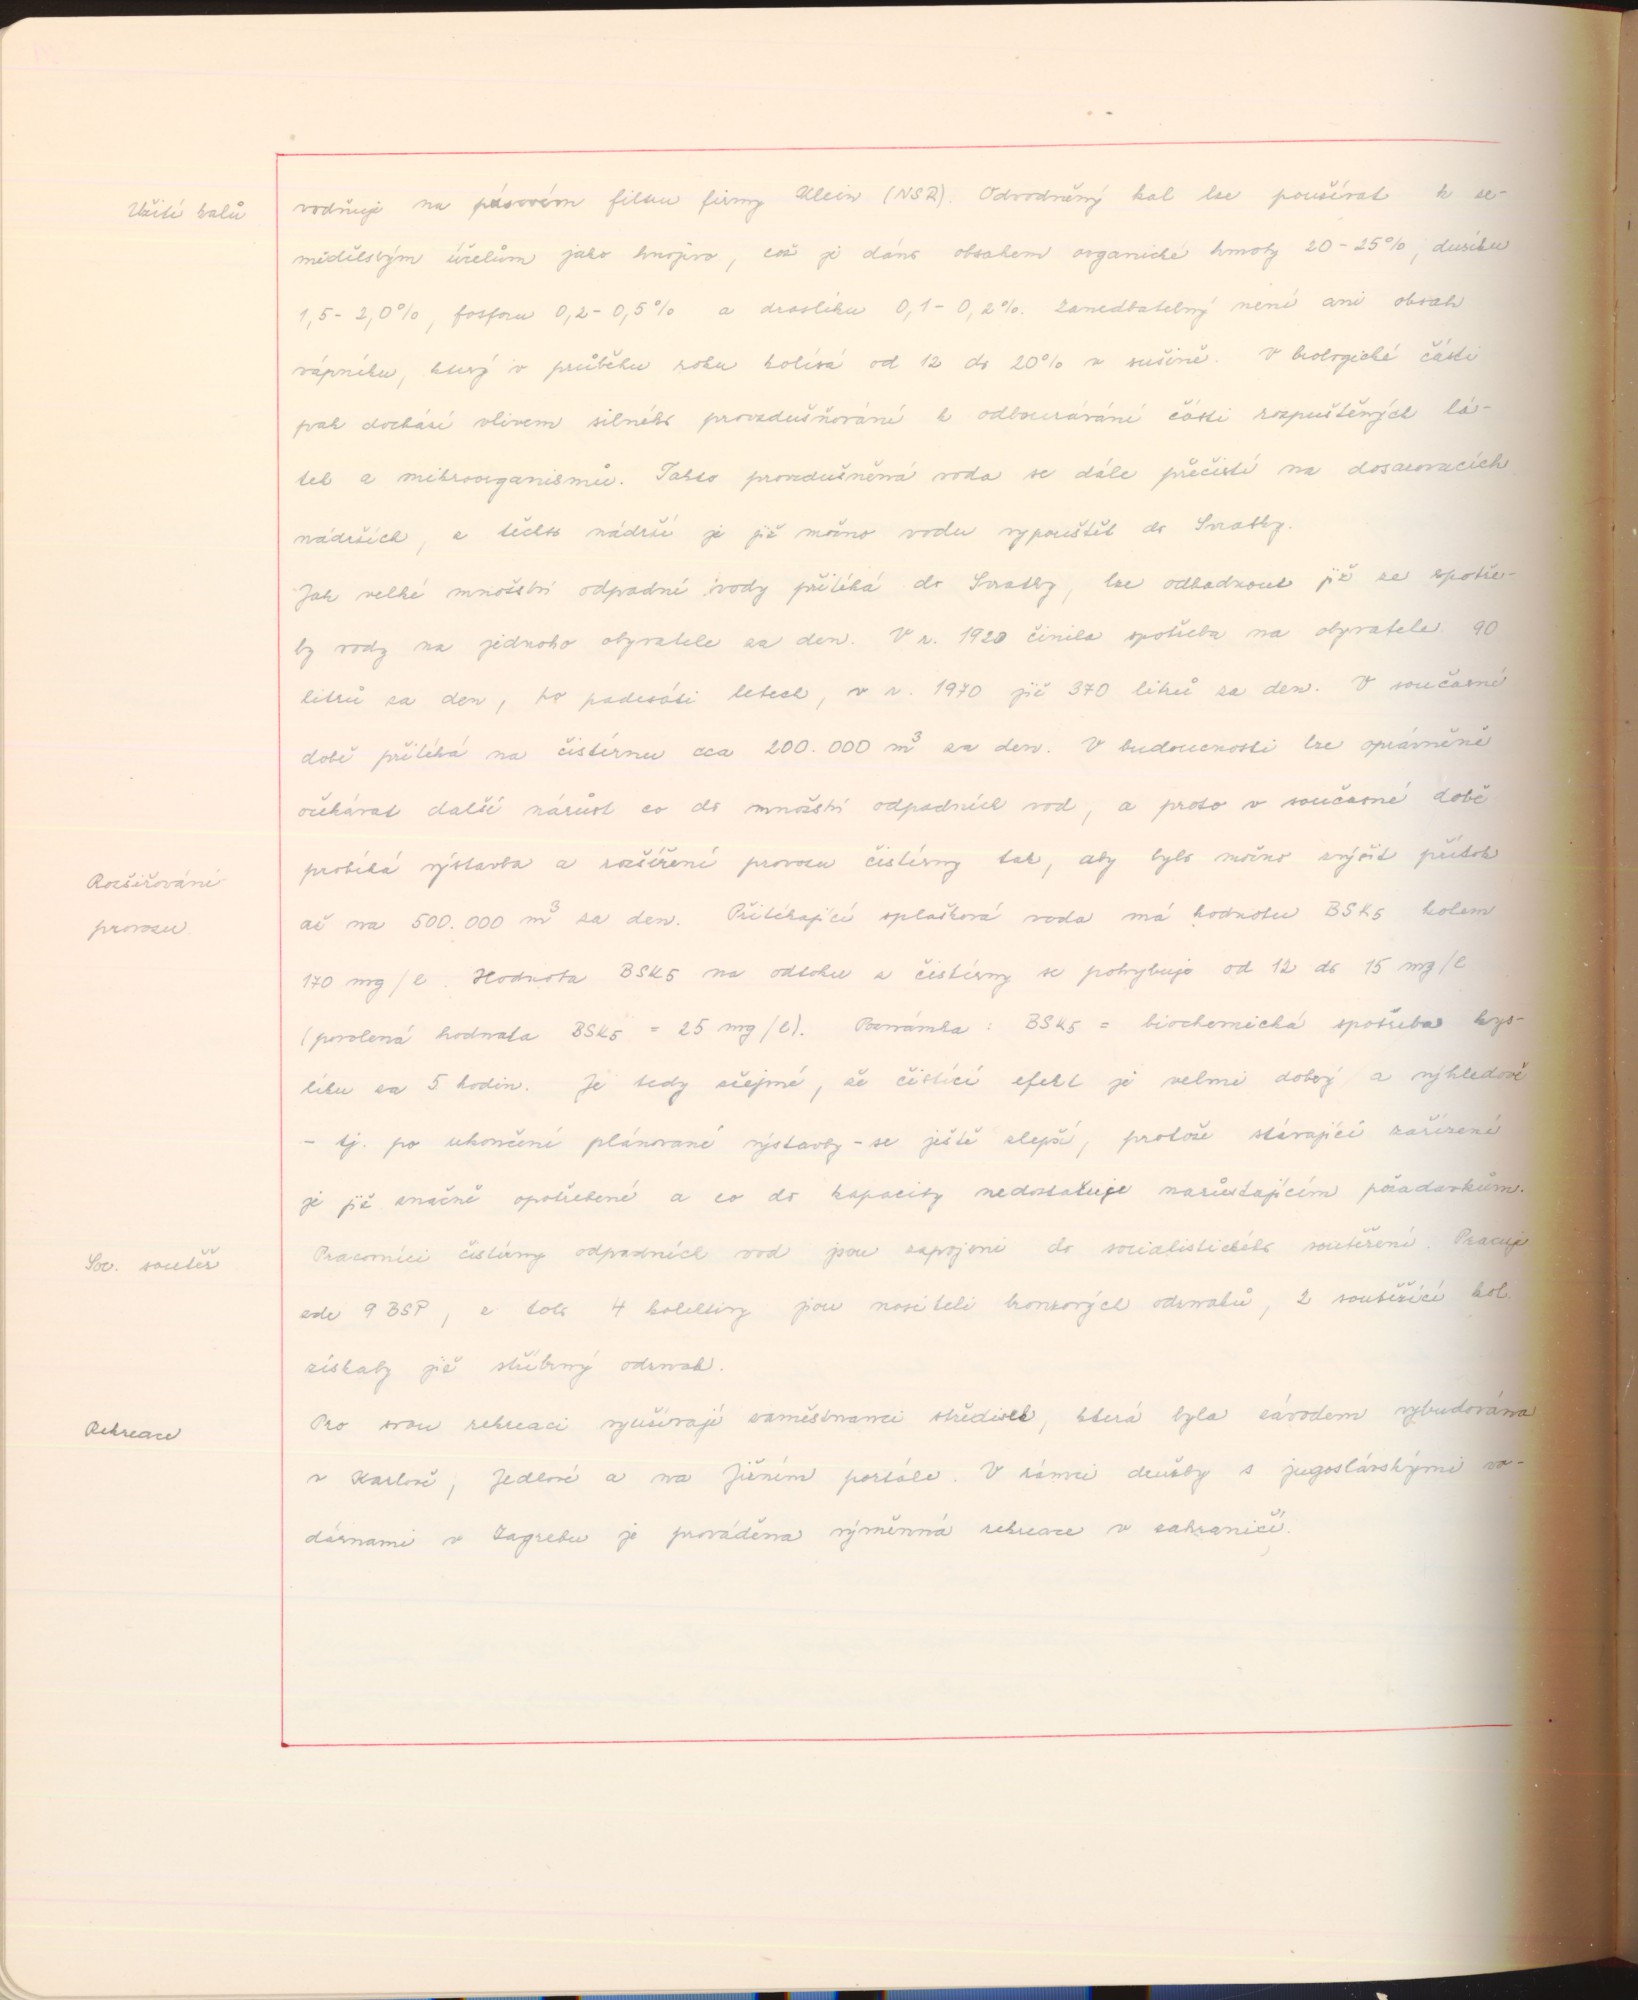 Užití kalů
vodňuje na pásovém filtru firmy Klein (NSR). Odvodněný kal lze používat k ze-
mědělským účelům jako hnojivo, což je dáno obsahem organické hmoty 20-25%, dusíku
1,5-2,0%, fosforu 0,2-0,5% a draslíku 0,1-0,2%. Zanedbatelný není ani obsah
vápníku, který v průběhu roku kolísá od 12 do 20% v sušině. V biologické části
pak dochází vlivem silného provzdušňování k odbourávání části rozpuštěných lá-
tek a mikroorganismů. Takto provzdušněná voda se dále přečistí na dosazovacích
nádržích, z těchto nádrží je již možno vodu vypouštět do Svratky.
Jak velké množství odpadní vody přitéká do Svratky, lze odhadnout již ze spotře-
by vody na jednoho obyvatele za den. V r. 1920 činila spotřeba na obyvatele 90
litrů za den, po padesáti letech, v r. 1970 již 370 litrů za den. V současné
době přitéká na čistírnu cca 200.000 m³ za den. V budoucnosti lze oprávněně
očekávat další nárůst co do množství odpadních vod, a proto v současné době
Rozšiřování
provozu
probíhá výstavba a rozšíření provozu čistírny tak, aby bylo možno zvýšit přítok
až na 500.000 m³ za den. Přitékající splašková voda má hodnotu BSK5 kolem
170 mg/l. Hodnota BSK5 na odtoku z čistírny se pohybuje od 12 do 15 mg/l
(povolená hodnota BSK5 = 25 mg/l). Poznámka: BSK5 = biochemická spotřeba kys-
líku za 5 hodin. Je tedy zřejmé, že čistící efekt je velmi dobrý a výhledově
- tj. po ukončení plánované výstavby - se ještě zlepší, protože stávající zařízení
je již značně opotřebené a co do kapacity nedostačuje narůstajícím požadavkům.
Soc. soutěž
Pracovníci čistírny odpadních vod jsou zapojeni do socialistického soutěžení. Pracuje
zde 9 BSP, z toho 4 kolektivy jsou nositeli bronzových odznaků, 2 soutěžící kol.
získaly již stříbrný odznak.
Rekreace
Pro svou rekreaci využívají zaměstnanci středisek, která byla závodem vybudována
v Karlově, Jedlové a na Jižním portále. V rámci družby s jugoslávskými vo-
dárnami v Zagrebu je prováděna výměnná rekreace v zahraničí.